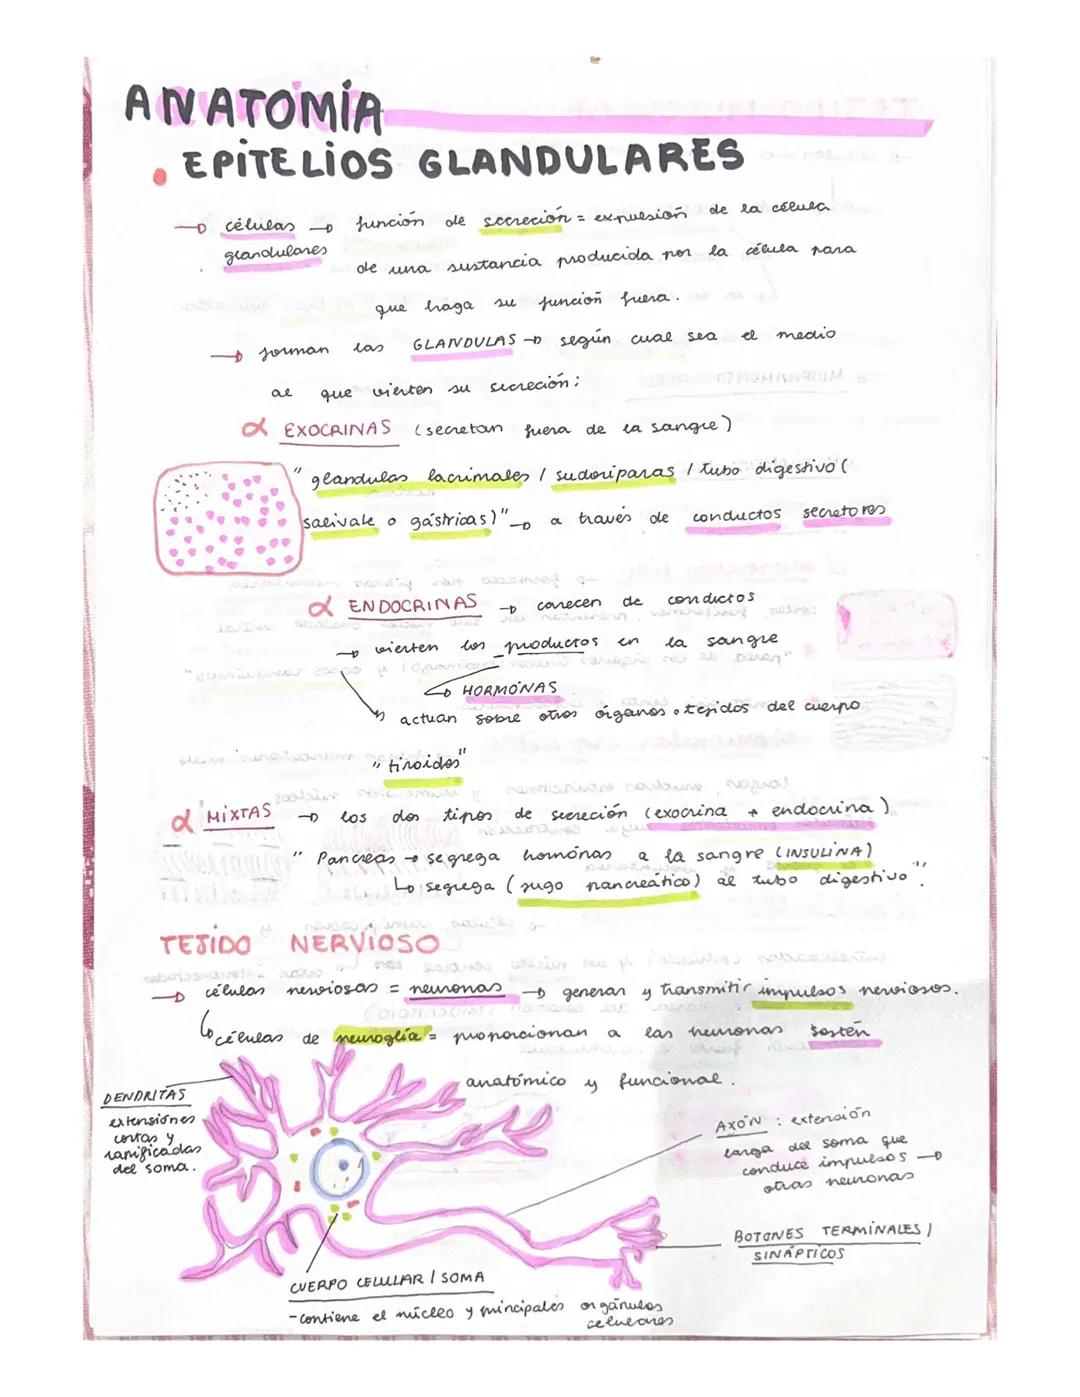 ANATOMÍA
EPITELIOS GLANDULARES
células → función de secreción = expulsión de la célula
glandulares
de una sustancia producida por la célula para
que haga su función fuera.
→ forman las GLANDULAS → según cual sea el medio
al que vierten su secreción:
α EXOCRINAS (secretan fuera de la sangre)
"glandulas lacrimales / sudoríparas / tubo digestivo (
salivale o gástricas)" → a través de conductos secretores
α ENDOCRINAS → carecen de conductos
→ vierten los productos en la sangre
↳ HORMONAS
↳ actuan sobre otros órganos o tejidos del cuerpo
"tiroides"
α MIXTAS → los dos tipos de secreción (exocrina + endocrina)
" Pancreas → segrega hormónas a la sangre (INSULINA)
↳ segrega (jugo pancreático) al tubo digestivo".
TEJIDO NERVIOSO
→ células nerviosas = neuronas → generan y transmitir impulsos nerviosos.
↳ células de neuroglía = proporcionan a las neuronas sostén
anatómico y funcional.
DENDRITAS
extensiónes
cortas y
ramificadas
del soma.
AXÓN : extensión
larga del soma que
conduce impulsos →
otras neuronas
BOTONES TERMINALES /
SINÁPTICOS
CUERPO CELULAR / SOMA
- contiene el núcleo y principales orgánulos
celulares